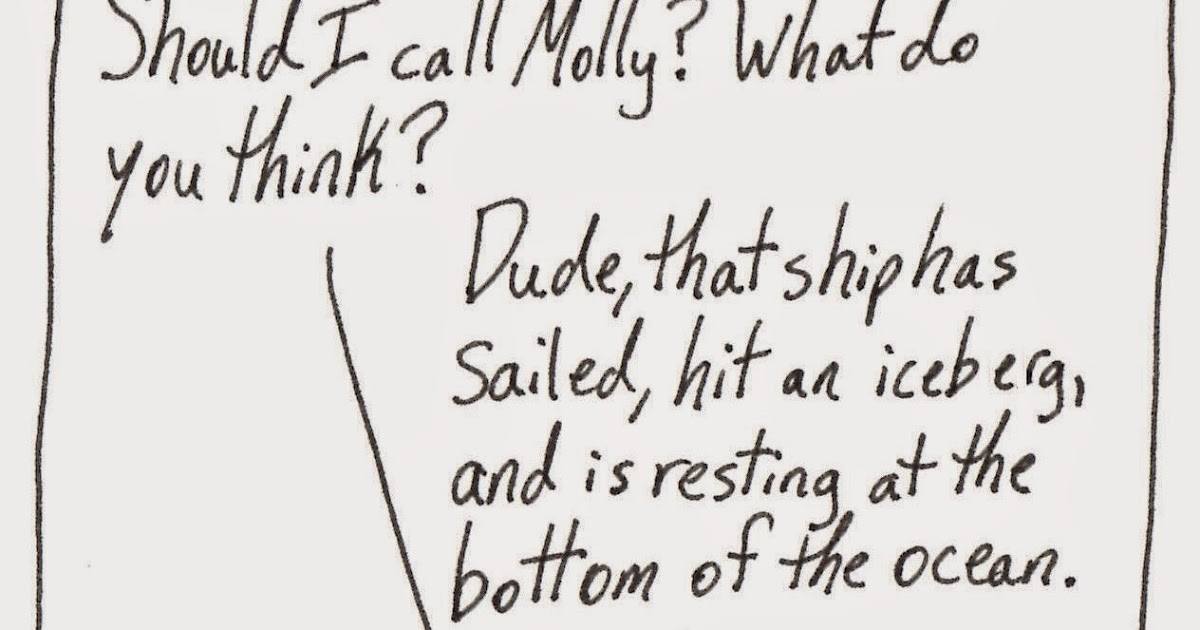 Should I call Molly? What do
you think?
Dude, that ship has
Sailed, hit an iceberg,
and is resting at the
bottom of the ocean.